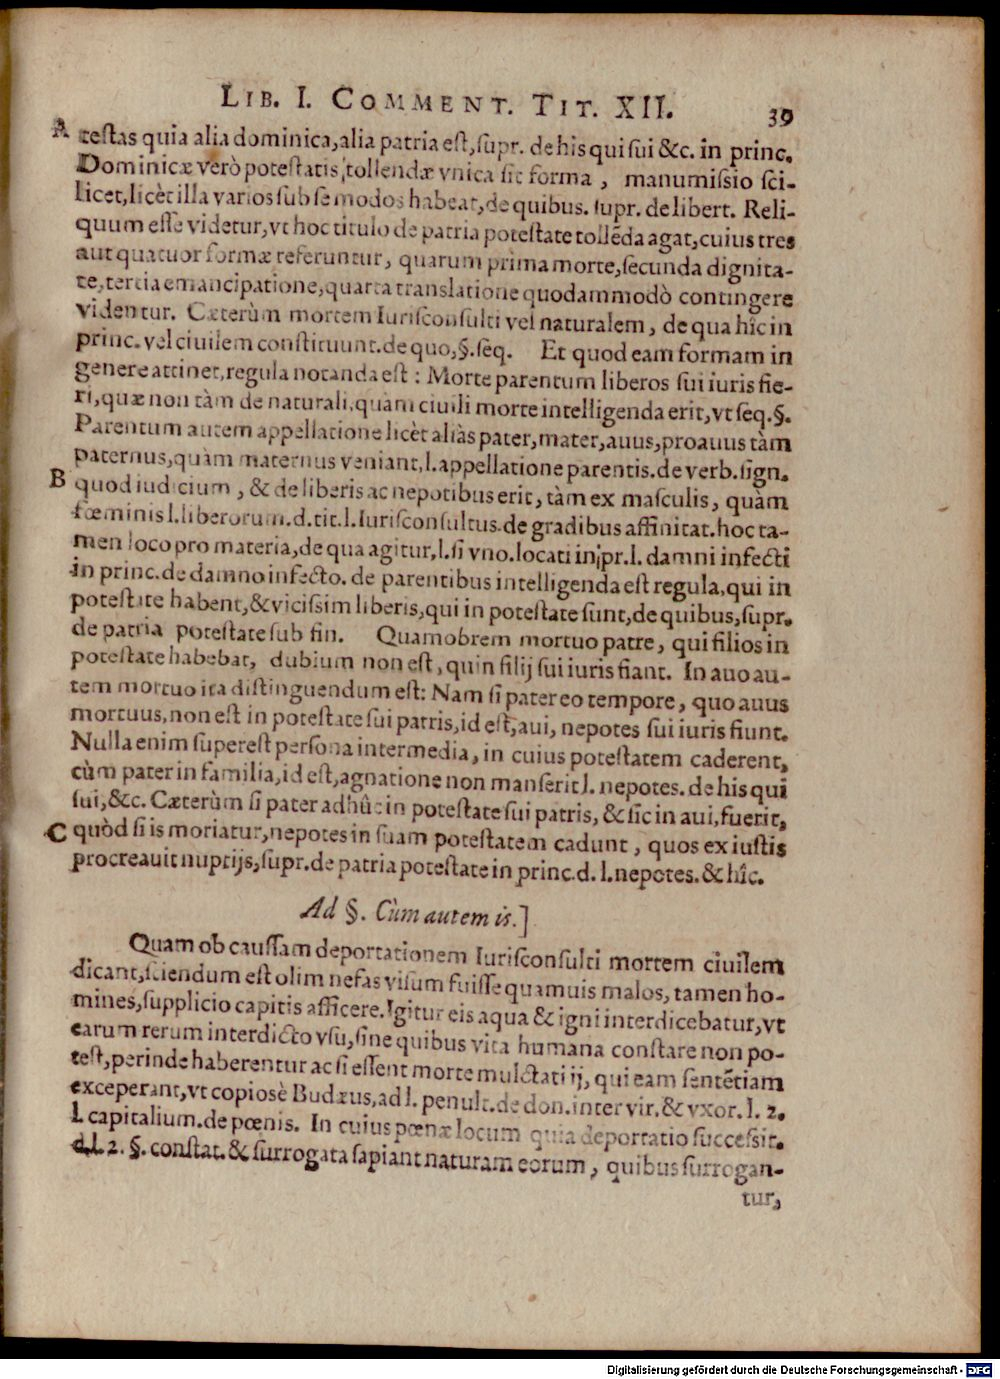 LIB. I. COMMENT. TIT. XII. 39
A testas quia alia dominica, alia patria est, supr. de his qui sui &c. in princ.
Dominicæ verò potestatis, tollendæ vnica sit forma, manumissio sci-
licet, licèt illa varios sub se modos habeat, de quibus. supr. de libert. Reli-
quum esse videtur, vt hoc titulo de patria potestate tollēda agat, cuius tres
aut quatuor formæ referuntur, quarum prima morte, secunda dignita-
te, tertia emancipatione, quarta translatione quodammodò contingere
videntur. Cæterùm mortem Iurisconsulti vel naturalem, de qua hîc in
princ. vel ciuilem constituunt. de quo, §. seq. Et quod eam formam in
genere attinet, regula notanda est: Morte parentum liberos sui iuris fie-
ri, quæ non tàm de naturali, quàm ciuili morte intelligenda erit, vt seq. §.
Parentum autem appellatione licèt aliàs pater, mater, auus, proauus tàm
paternus, quàm maternus veniant, l. appellatione parentis. de verb. sign.
B quod iudicium, & de liberis ac nepotibus erit, tàm ex masculis, quàm
fœminis l. liberorum. d. tit. l. Iurisconsultus. de gradibus affinitat. hoc ta-
men loco pro materia, de qua agitur, l. si vno. locati in pr. l. damni infecti
in princ. de damno infecto. de parentibus intelligenda est regula, qui in
potestate habent, & vicissim liberis, qui in potestate sunt, de quibus, supr.
de patria potestate sub fin. Quamobrem mortuo patre, qui filios in
potestate habebat, dubium non est, quin filij sui iuris fiant. In auo au-
tem mortuo ita distinguendum est: Nam si pater eo tempore, quo auus
mortuus, non est in potestate sui patris, id est, aui, nepotes sui iuris fiunt.
Nulla enim superest persona intermedia, in cuius potestatem caderent,
cùm pater in familia, id est, agnatione non manserit l. nepotes. de his qui
sui, &c. Cæterùm si pater adhûc in potestate sui patris, & sic in aui, fuerit,
C quòd si is moriatur, nepotes in suam potestatem cadunt, quos ex iustis
procreauit nuptijs, supr. de patria potestate in princ. d. l. nepotes. & hîc.
Ad §. Cùm autem is.]
Quam ob caussam deportationem Iurisconsulti mortem ciuilem
dicant, sciendum est olim nefas visum fuisse quamuis malos, tamen ho-
mines, supplicio capitis afficere. Igitur eis aqua & igni interdicebatur, vt
earum rerum interdicto vsu, sine quibus vita humana constare non po-
test, perinde haberentur ac si essent morte mulctati ij, qui eam sentētiam
exceperant, vt copiosè Budæus, ad l. penult. de don. inter vir. & vxor. l. 2.
l. capitalium. de pœnis. In cuius pœnæ locum quia deportatio successit.
d. l. 2. §. constat. & surrogata sapiant naturam eorum, quibus surrogan-
tur,
Digitalisierung gefördert durch die Deutsche Forschungsgemeinschaft - DFG